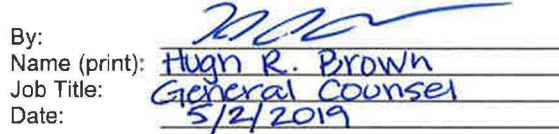 By:
Name (print): Hugh R. Brown
Job Title: General Counsel
Date: 5/2/2019